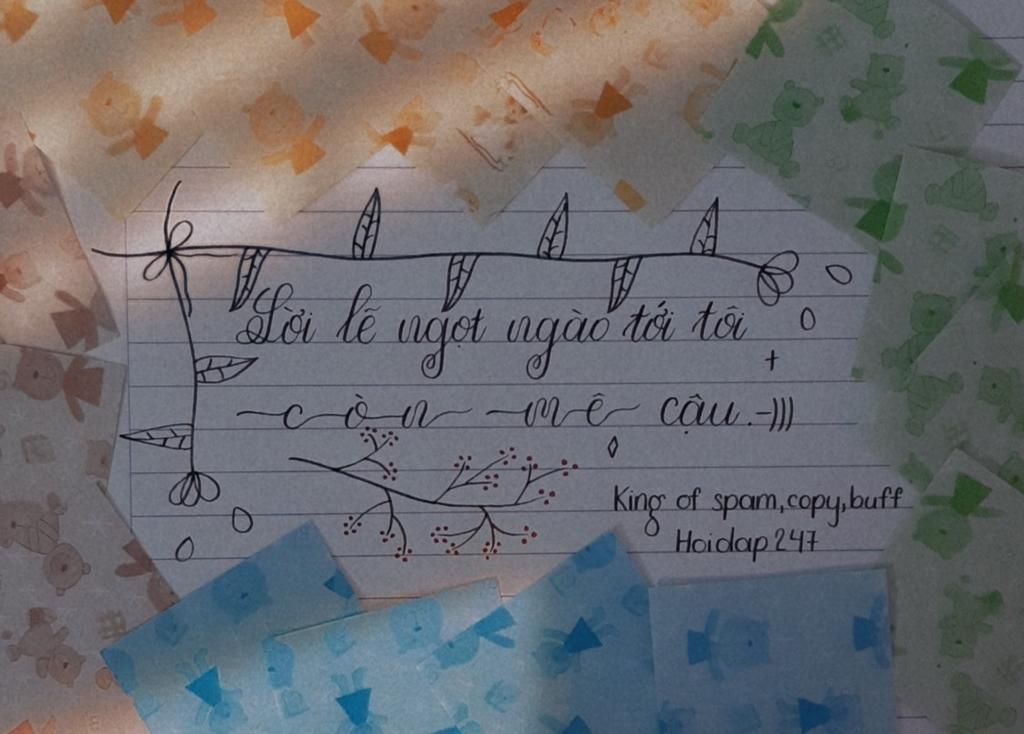 Lời lẽ ngọt ngào tới tôi
còn mê cậu.-)))
King of spam,copy,buff
Hoidap247